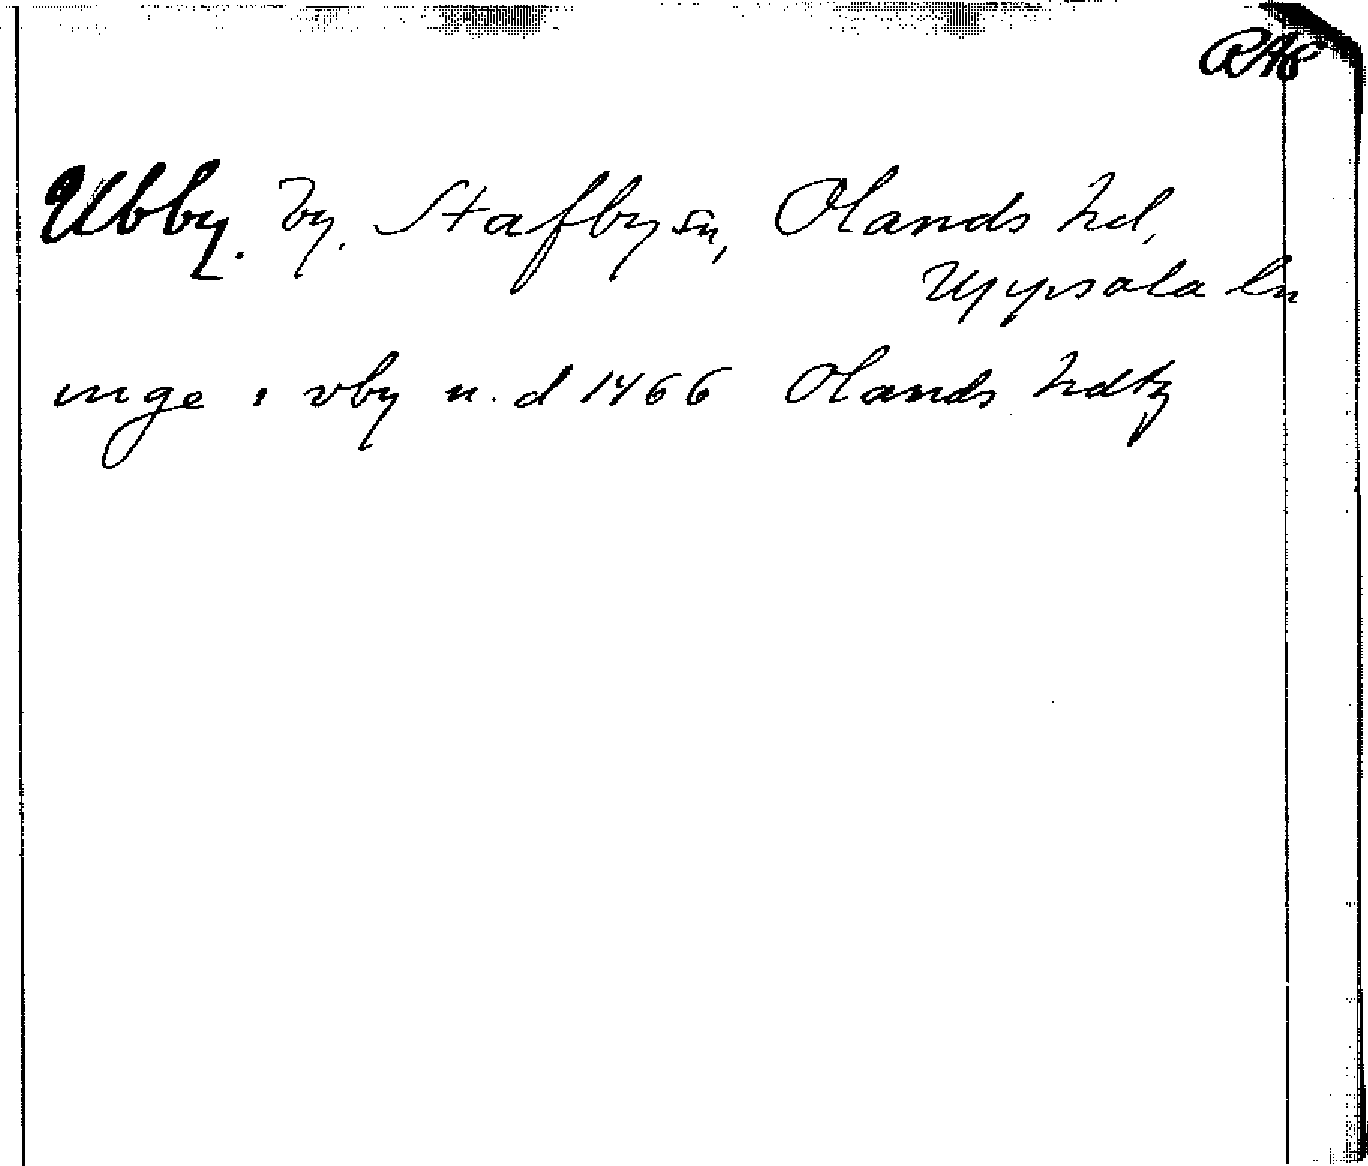 RAP
Ubby. by. Stafby sn, Olands hd,
Uppsala ln
inge i vby u. d 1466 Olands hdtg